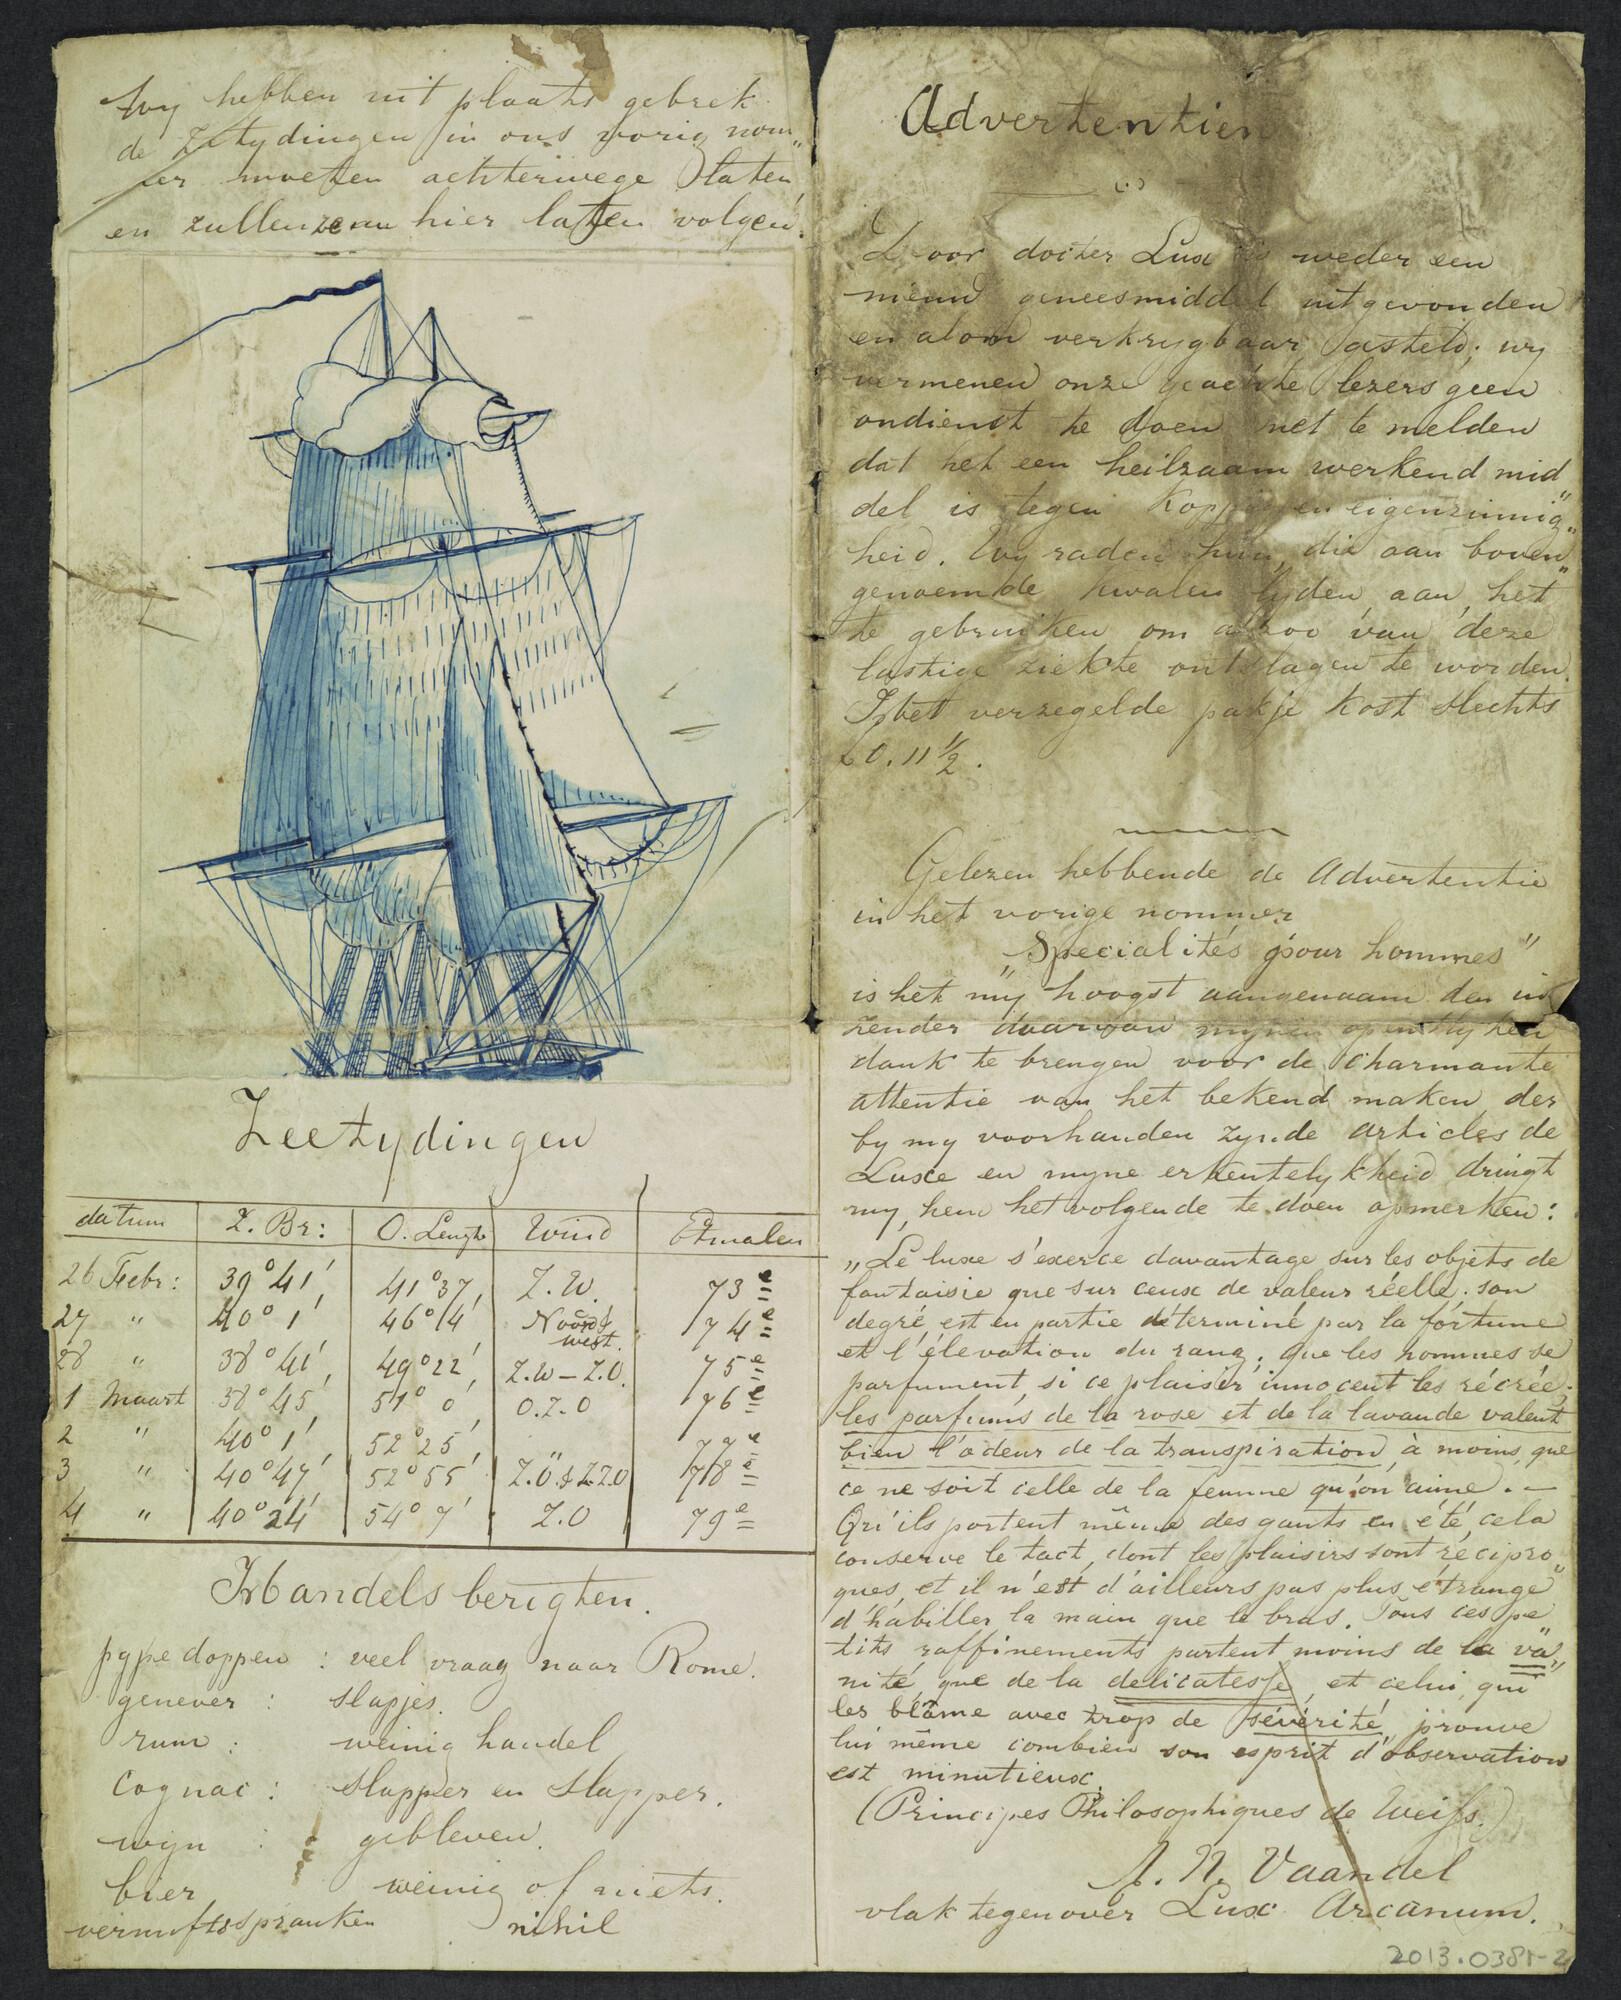 Wy hebben uit plaats gebrek
de Zeetydingen in ons vorig nom„
mer moeten achterwege laten
en zullen ze nu hier laten volgen.
Zeetydingen
datum Z. Br: O. Lengte Wind Etmalen
26 Febr: 39° 41′ 41° 37′ Z. W. 73e
27 " 40° 1′ 46° 14′ Noord west. 74e
28 " 38° 41′ 49° 22′ Z.W – Z.O. 75e
1 Maart 38° 45′ 51° 0′ O.Z.O 76e
2 " 40° 1′ 52° 25′ " 77e
3 " 40° 47′ 52° 55′ Z.O. & Z.Z.O 78e
4 " 40° 24′ 54° 7′ Z.O 79e
Handels berigten.
pype doppen : veel vraag naar Rome.
genever : slapjes.
rum : weinig handel
Cognac : slapper en slapper.
wyn : gebleven.
bier weinig of niets.
vernuftsspranken nihil
Advertentien
Door docter Lux is weder een
nieuw geneesmiddel uitgevonden
en alom verkrygbaar gesteld; wy
vermenen onze geachte lezers geen
ondienst te doen met te melden
dat het een heilzaam werkend mid„
del is tegen koppig en eigenzinnig„
heid. Wy raden hun, die aan boven„
genoemde kwalen lyden, aan, het
te gebruiken om alzoo van deze
lastige ziekte ontslagen te worden.
Het verzegelde pakje kost slechts
f 0.11½.
Gelezen hebbende de Advertentie
in het vorige nommer
„Specialités pour hommes"
is het my hoogst aangenaam den in
zender daarvan mynen openlyken
dank te brengen voor de charmante
attentie van het bekend maken der
by my voorhanden zynde articles de
Luxe en myne erkentelykheid dringt
my, hem het volgende te doen opmerken:
„Le luxe s'exerce davantage sur les objets de
fantaisie que sur ceux de valeur réelle; son
degré est en partie déterminé par la fortune
et l'élevation du rang; que les hommes se
parfument, si ce plaisir innocent les récrée;
les parfums de la rose et de la lavande valent
bien l'odeur de la transpiration, à moins, que
ce ne soit celle de la femme qu'on aime. –
Qu'ils portent même des gants en été, cela
conserve le tact, dont les plaisirs sont récipro„
ques, et il n'est d'ailleurs pas plus étrange
d'habiller la main que le bras. Tous ces pe
tits raffinements partent moins de la va„
nité, que de la delicatesse, et celui, qui
les blâme avec trop de sévérité, prouve
lui même combien son esprit d'observation
est minutieux.
(Principes Philosophiques de Weiss.)
A. N. Vaandel
vlak tegenover Lux Arcanum.
2013.0381-2